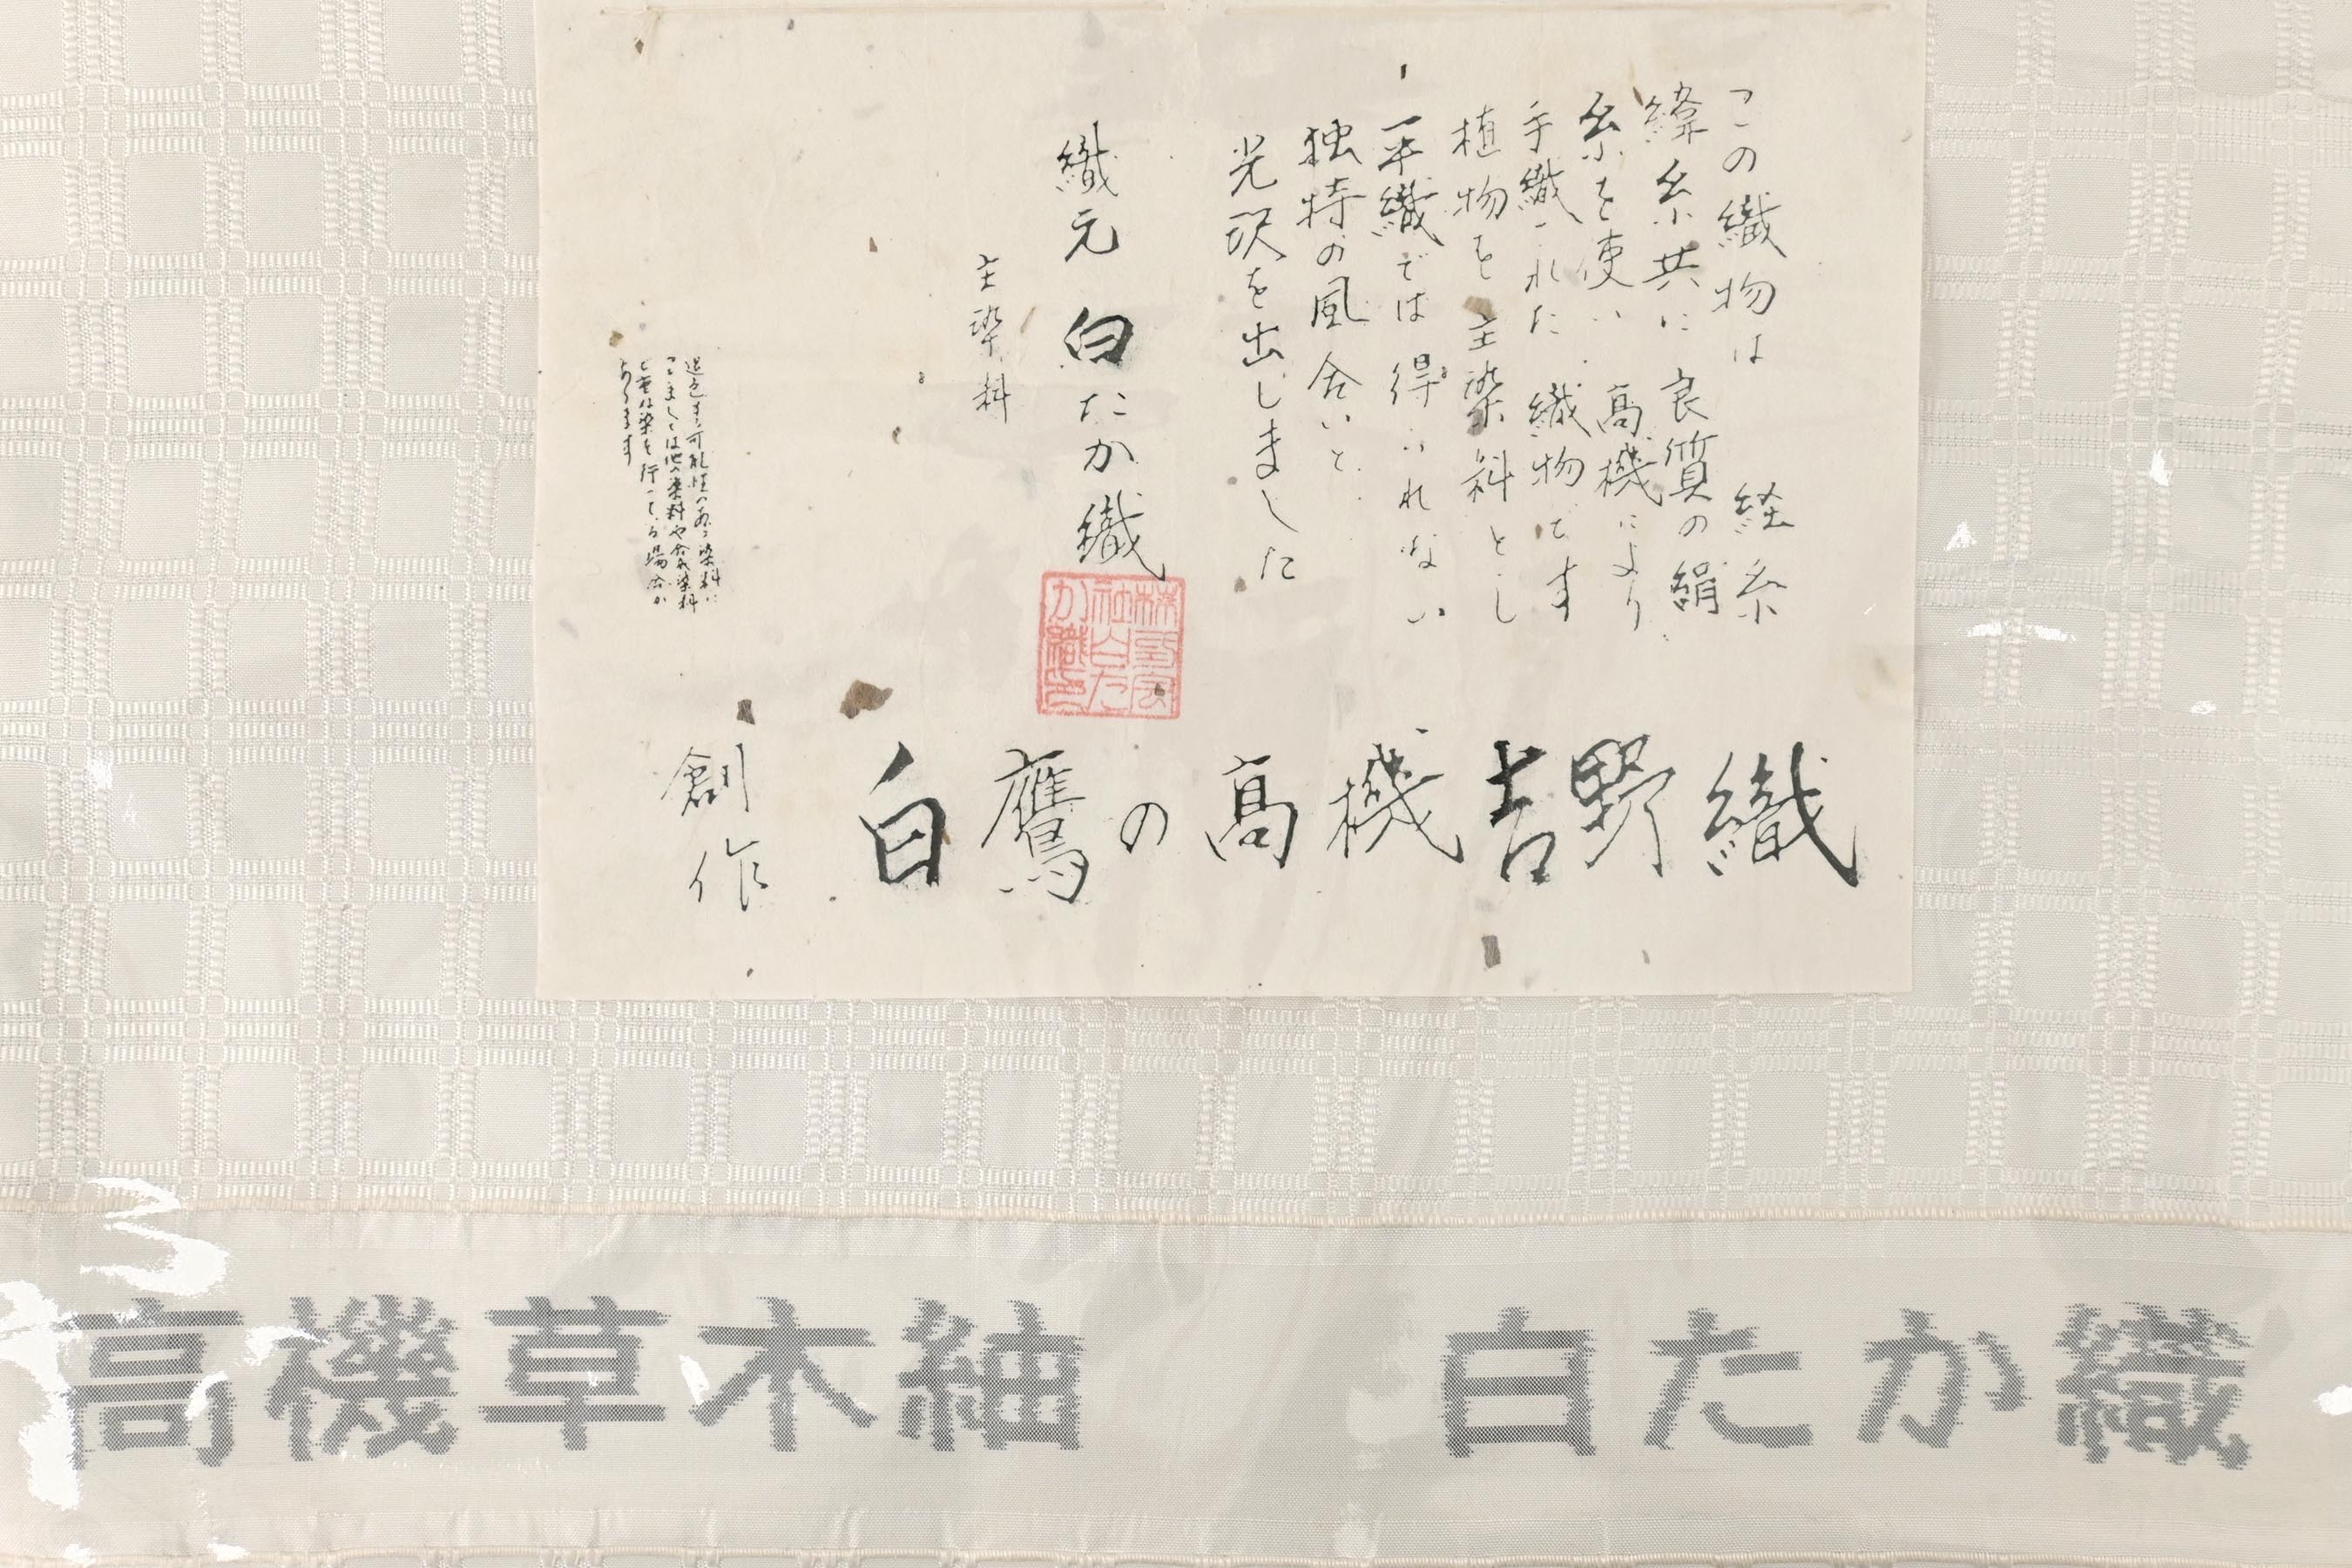 この織物は 経糸
緯糸共に良質の絹
糸を使い 高機により
手織された 織物です
植物を主染料とし
平織では得られない
独特の風合いと
光沢を出しました
織元 白たか織
主染料
退色する可能性のある染料に
つきましては他の染料や合成染料
と重ね染を行っている場合が
あります
株式会
社白た
か織
創作
白鷹の高機吉野織
高機草木紬 白たか織